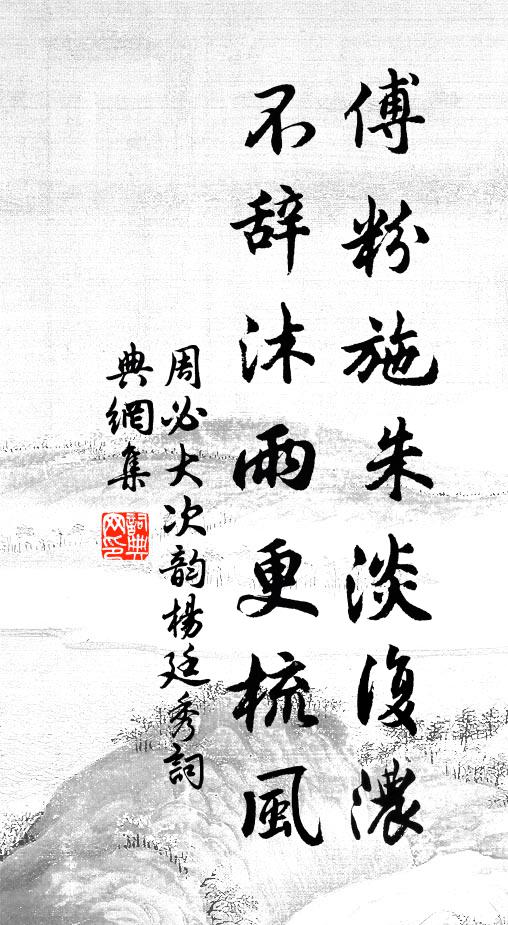 傅粉施朱淡復濃
不辞沐雨更梳風
周必大次韵楊廷秀詞
典網集
詞典